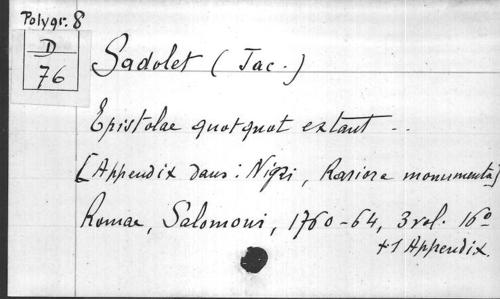 Polygr. 8
D
76
Sadolet (Jac.)
Epistolae quotquot extant ..
[Appendix dans: Nigri, Rariora monumenta]
Romae, Salomoni, 1760-64, 3 vol. 16º
+1 Appendix.